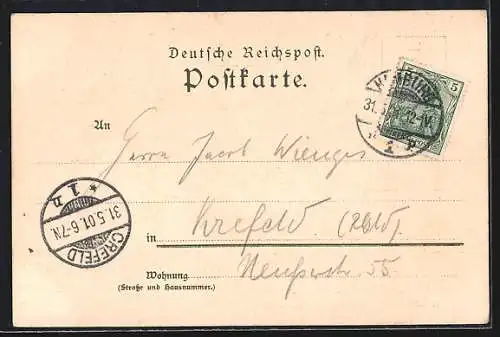 Deutsche Reichspost.
Postkarte.
5
31.5.01. 12-1V.
An
Herrn Jacob Wienges
* 1 n
31.5.01. 6-7N.
CREFELD
in Krefeld (Rhld).
Wohnung Neußerstr 55
(Straße und Hausnummer.)